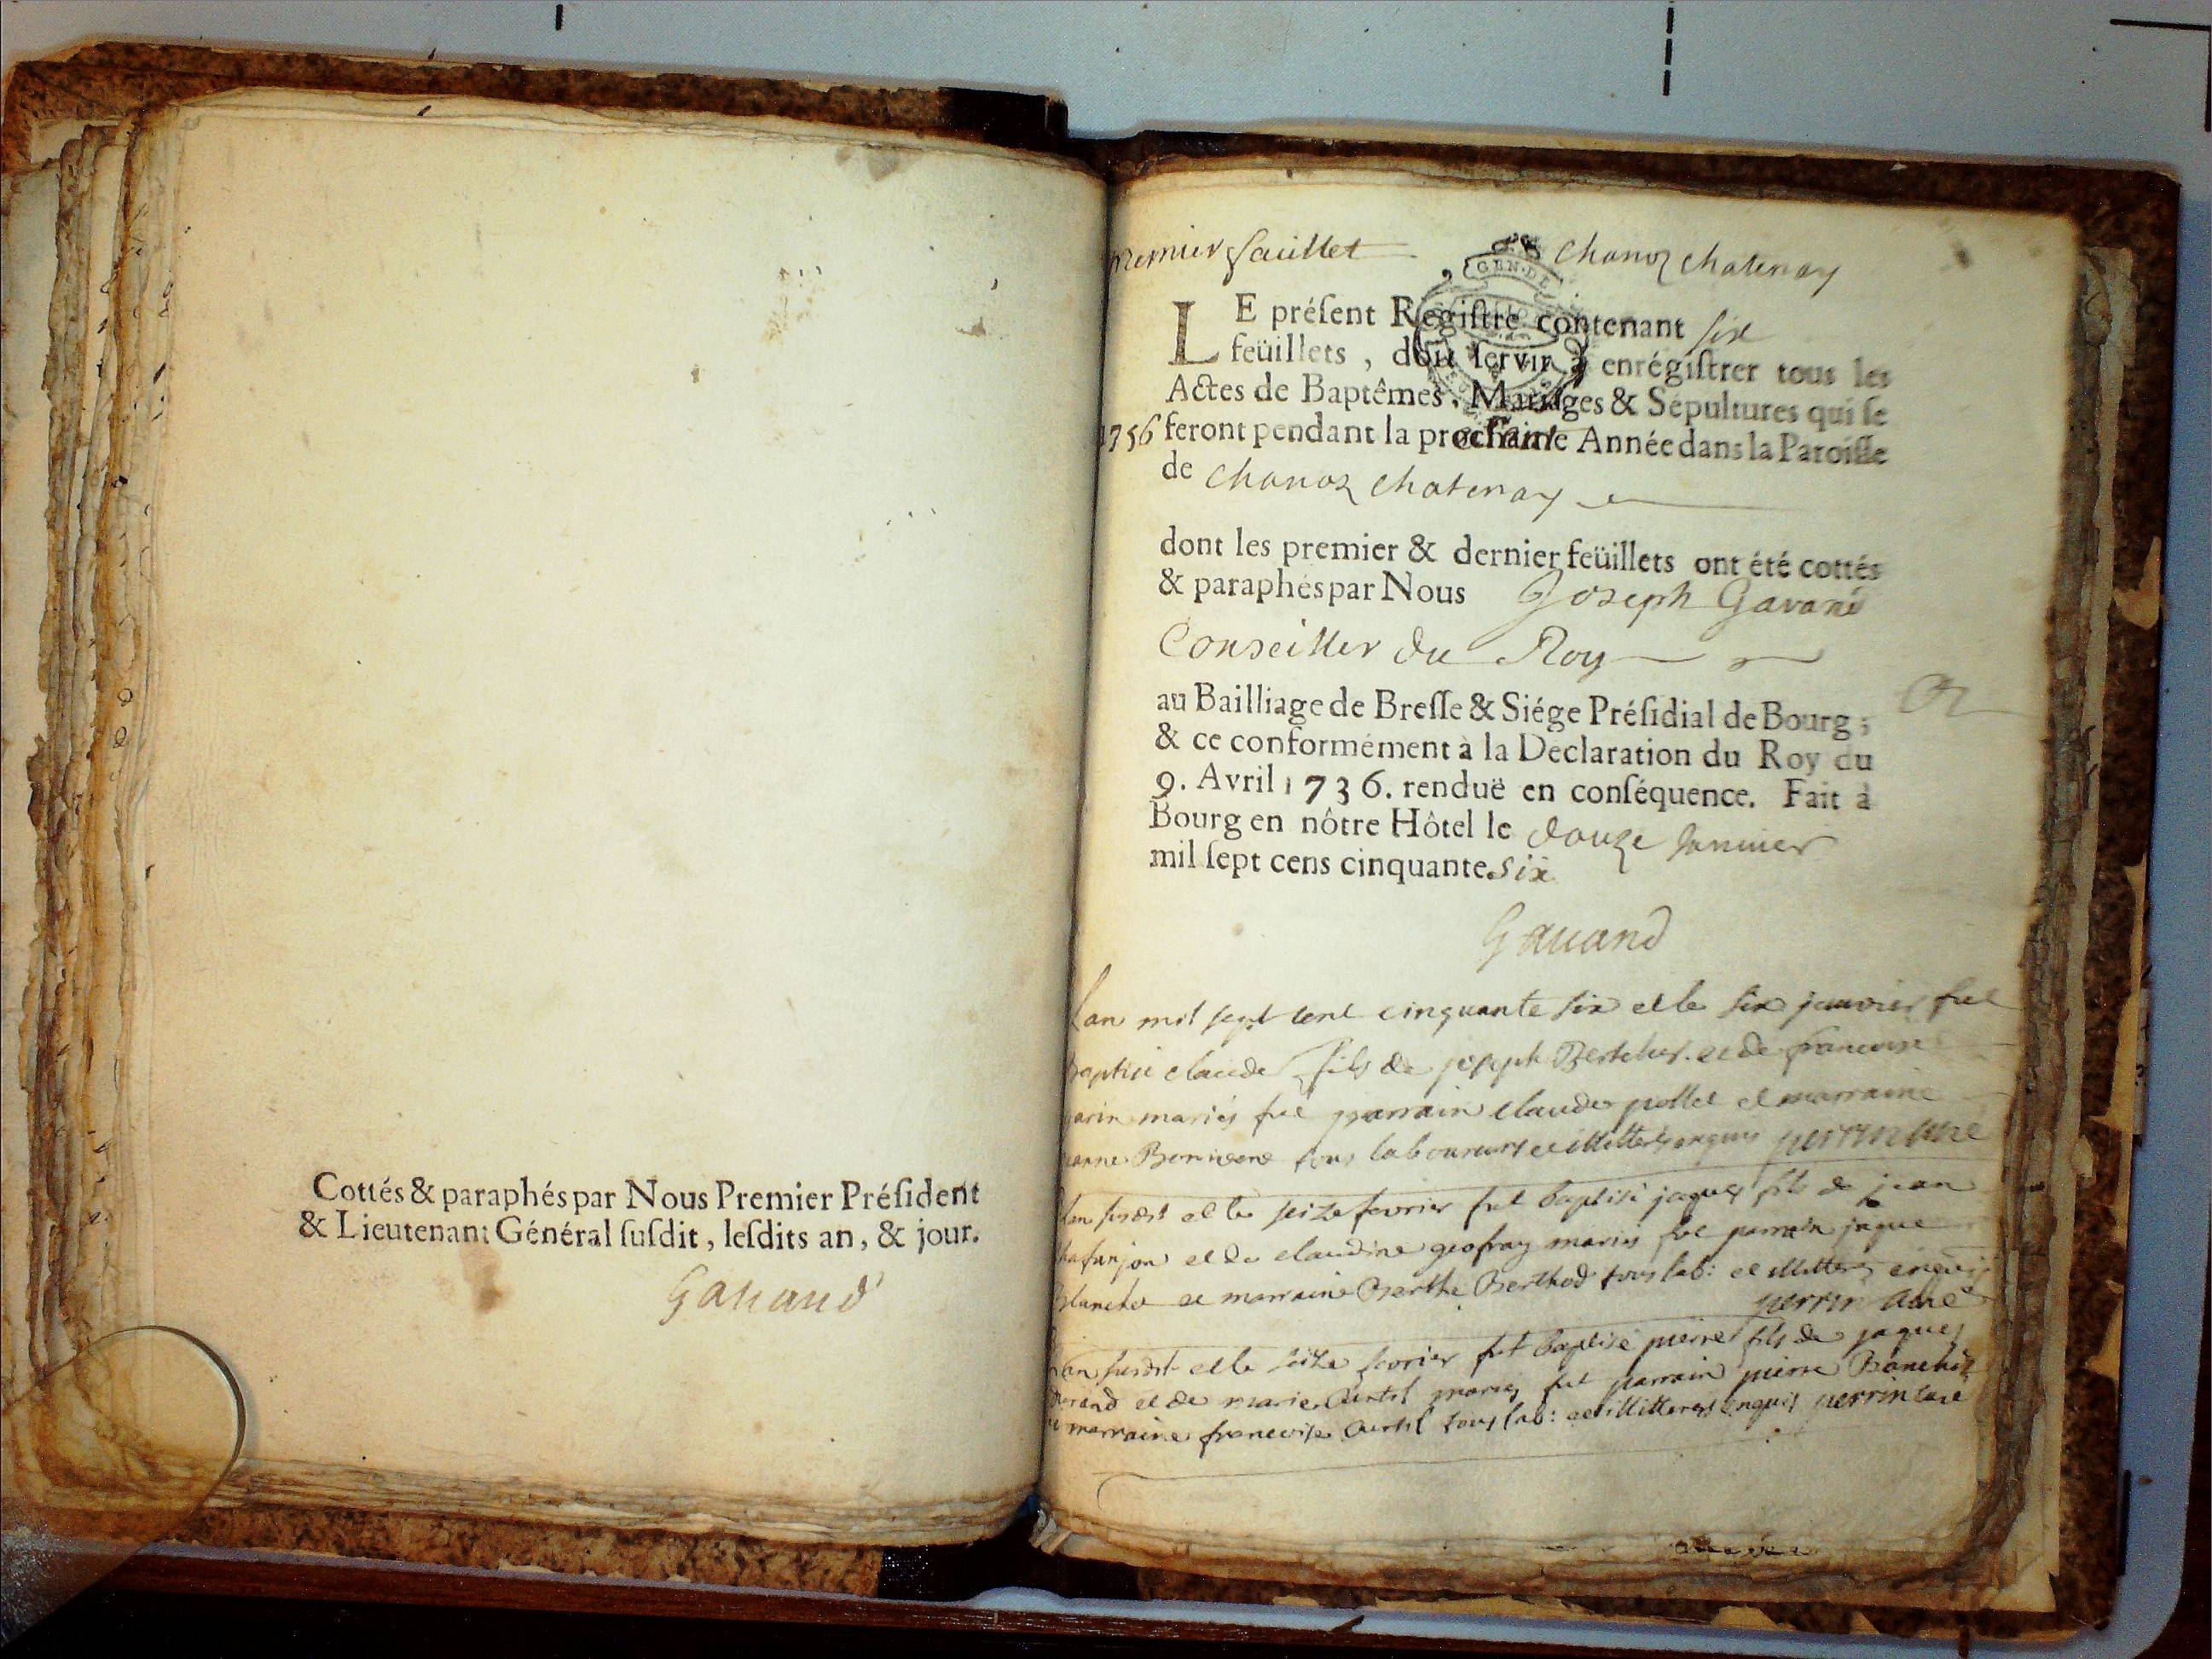 Cottés & paraphés par Nous Premier Préſident
& Lieutenant Général ſuſdit, leſdits an, & jour.
Gauand
premier faiillet
Chanoz chatenay
GEN. DE
LE préſent Regiſtre contenant six
feüillets, doit ſervir à enrégiſtrer tous les
Actes de Baptêmes, Mariages & Sépultures qui ſe
1756 feront pendant la prochaine Année dans la Paroiſſe
de Chanoz chatenay
dont les premier & dernier feüillets ont été cottés
& paraphés par Nous Joseph Gavand
Conseiller du Roy
au Bailliage de Breſſe & Siége Préſidial de Bourg;
& ce conformément à la Déclaration du Roy du
9. Avril 1736. renduë en conſéquence. Fait à
Bourg en nôtre Hôtel le douze Januier
mil ſept cens cinquante six
Gauand
Lan mil sept cent cinquante six et le six janvier fut
Baptisé claude fils de joseph et de francoise
mariés fut parrain claude et marraine
tous laboureurs et illitterés enquis perrin curé
Lan susdit et le seize fevrier fut baptisé jaques fils de jean
et de claudine geofray mariés fut parrain jaque
et marraine Berthe Berthod tous lab: et illitterés enquis
perrin curé
Lan susdit et le seize fevrier fut baptisé pierre fils de jaques
et de marie mariés fut parrain pierre
et marraine francoise tous lab: et illitterés enquis perrin curé